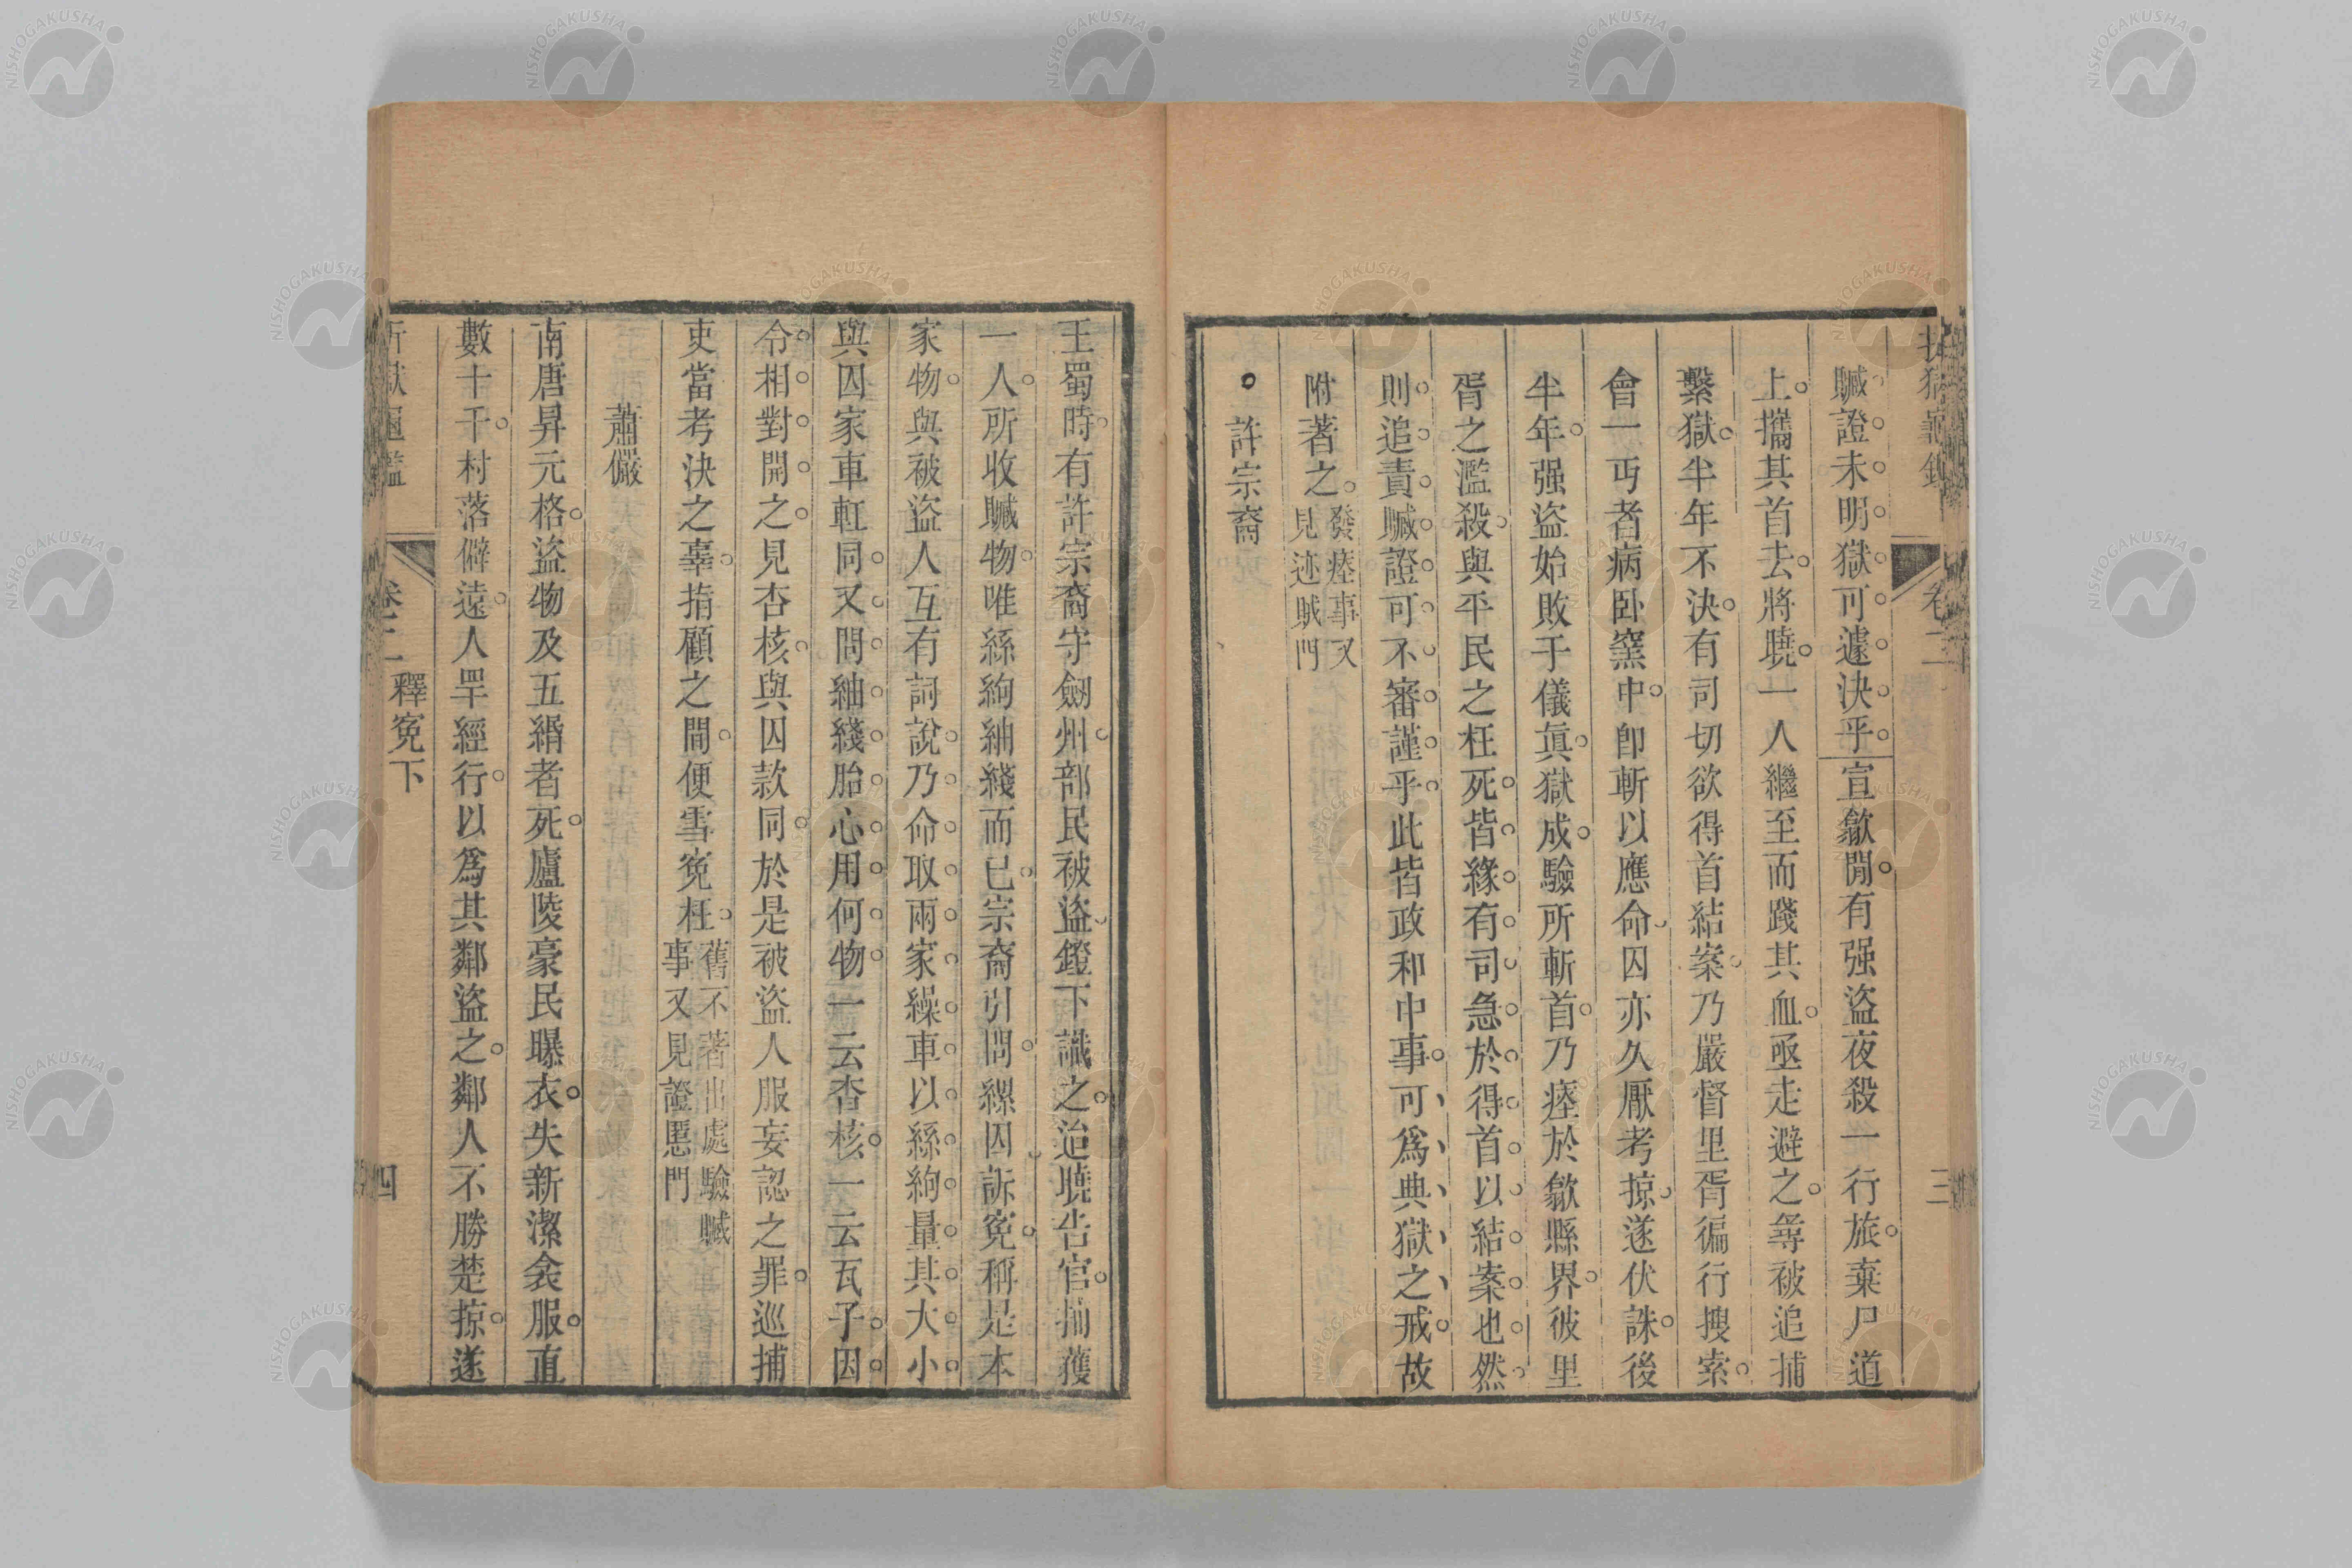 贓證未明獄可遽決乎宣歙閒有强盜夜殺一行旅棄尸道
上攜其首去將曉一人繼至而踐其血亟走避之尋被追捕
繫獄半年不決有司切欲得首結案乃嚴督里胥徧行搜索
會一丐者病卧窯中卽斬以應命囚亦久厭考掠遂伏誅後
半年强盜始敗于儀眞獄成驗所斬首乃瘞於歙縣界彼里
胥之濫殺與平民之枉死皆緣有司急於得首以結案也然
則追責贓證可不審謹乎此皆政和中事可爲典獄之戒故
附著之發瘞事又見迹賊門
許宗裔
王蜀時有許宗裔守劒州部民被盜鐙下識之迨曉告官捕獲
一人所收贓物唯絲絇紬綫而已宗裔引問縲囚訴寃稱是本
家物與被盜人互有詞說乃命取兩家繰車以絲絇量其大小
與囚家車軠同又問紬綫胎心用何物一云杏核一云瓦子因
令相對開之見杏核與囚款同於是被盜人服妄認之罪巡捕
吏當考決之辜指顧之間便雪寃枉舊不著出處驗贓事又見證慝門
蕭儼
南唐昇元格盜物及五緡者死廬陵豪民曝衣失新潔衾服直
數十千村落僻遠人罕經行以爲其鄰盜之鄰人不勝楚掠遂
卷二 釋寃下
四
NISHOGAKUSHA